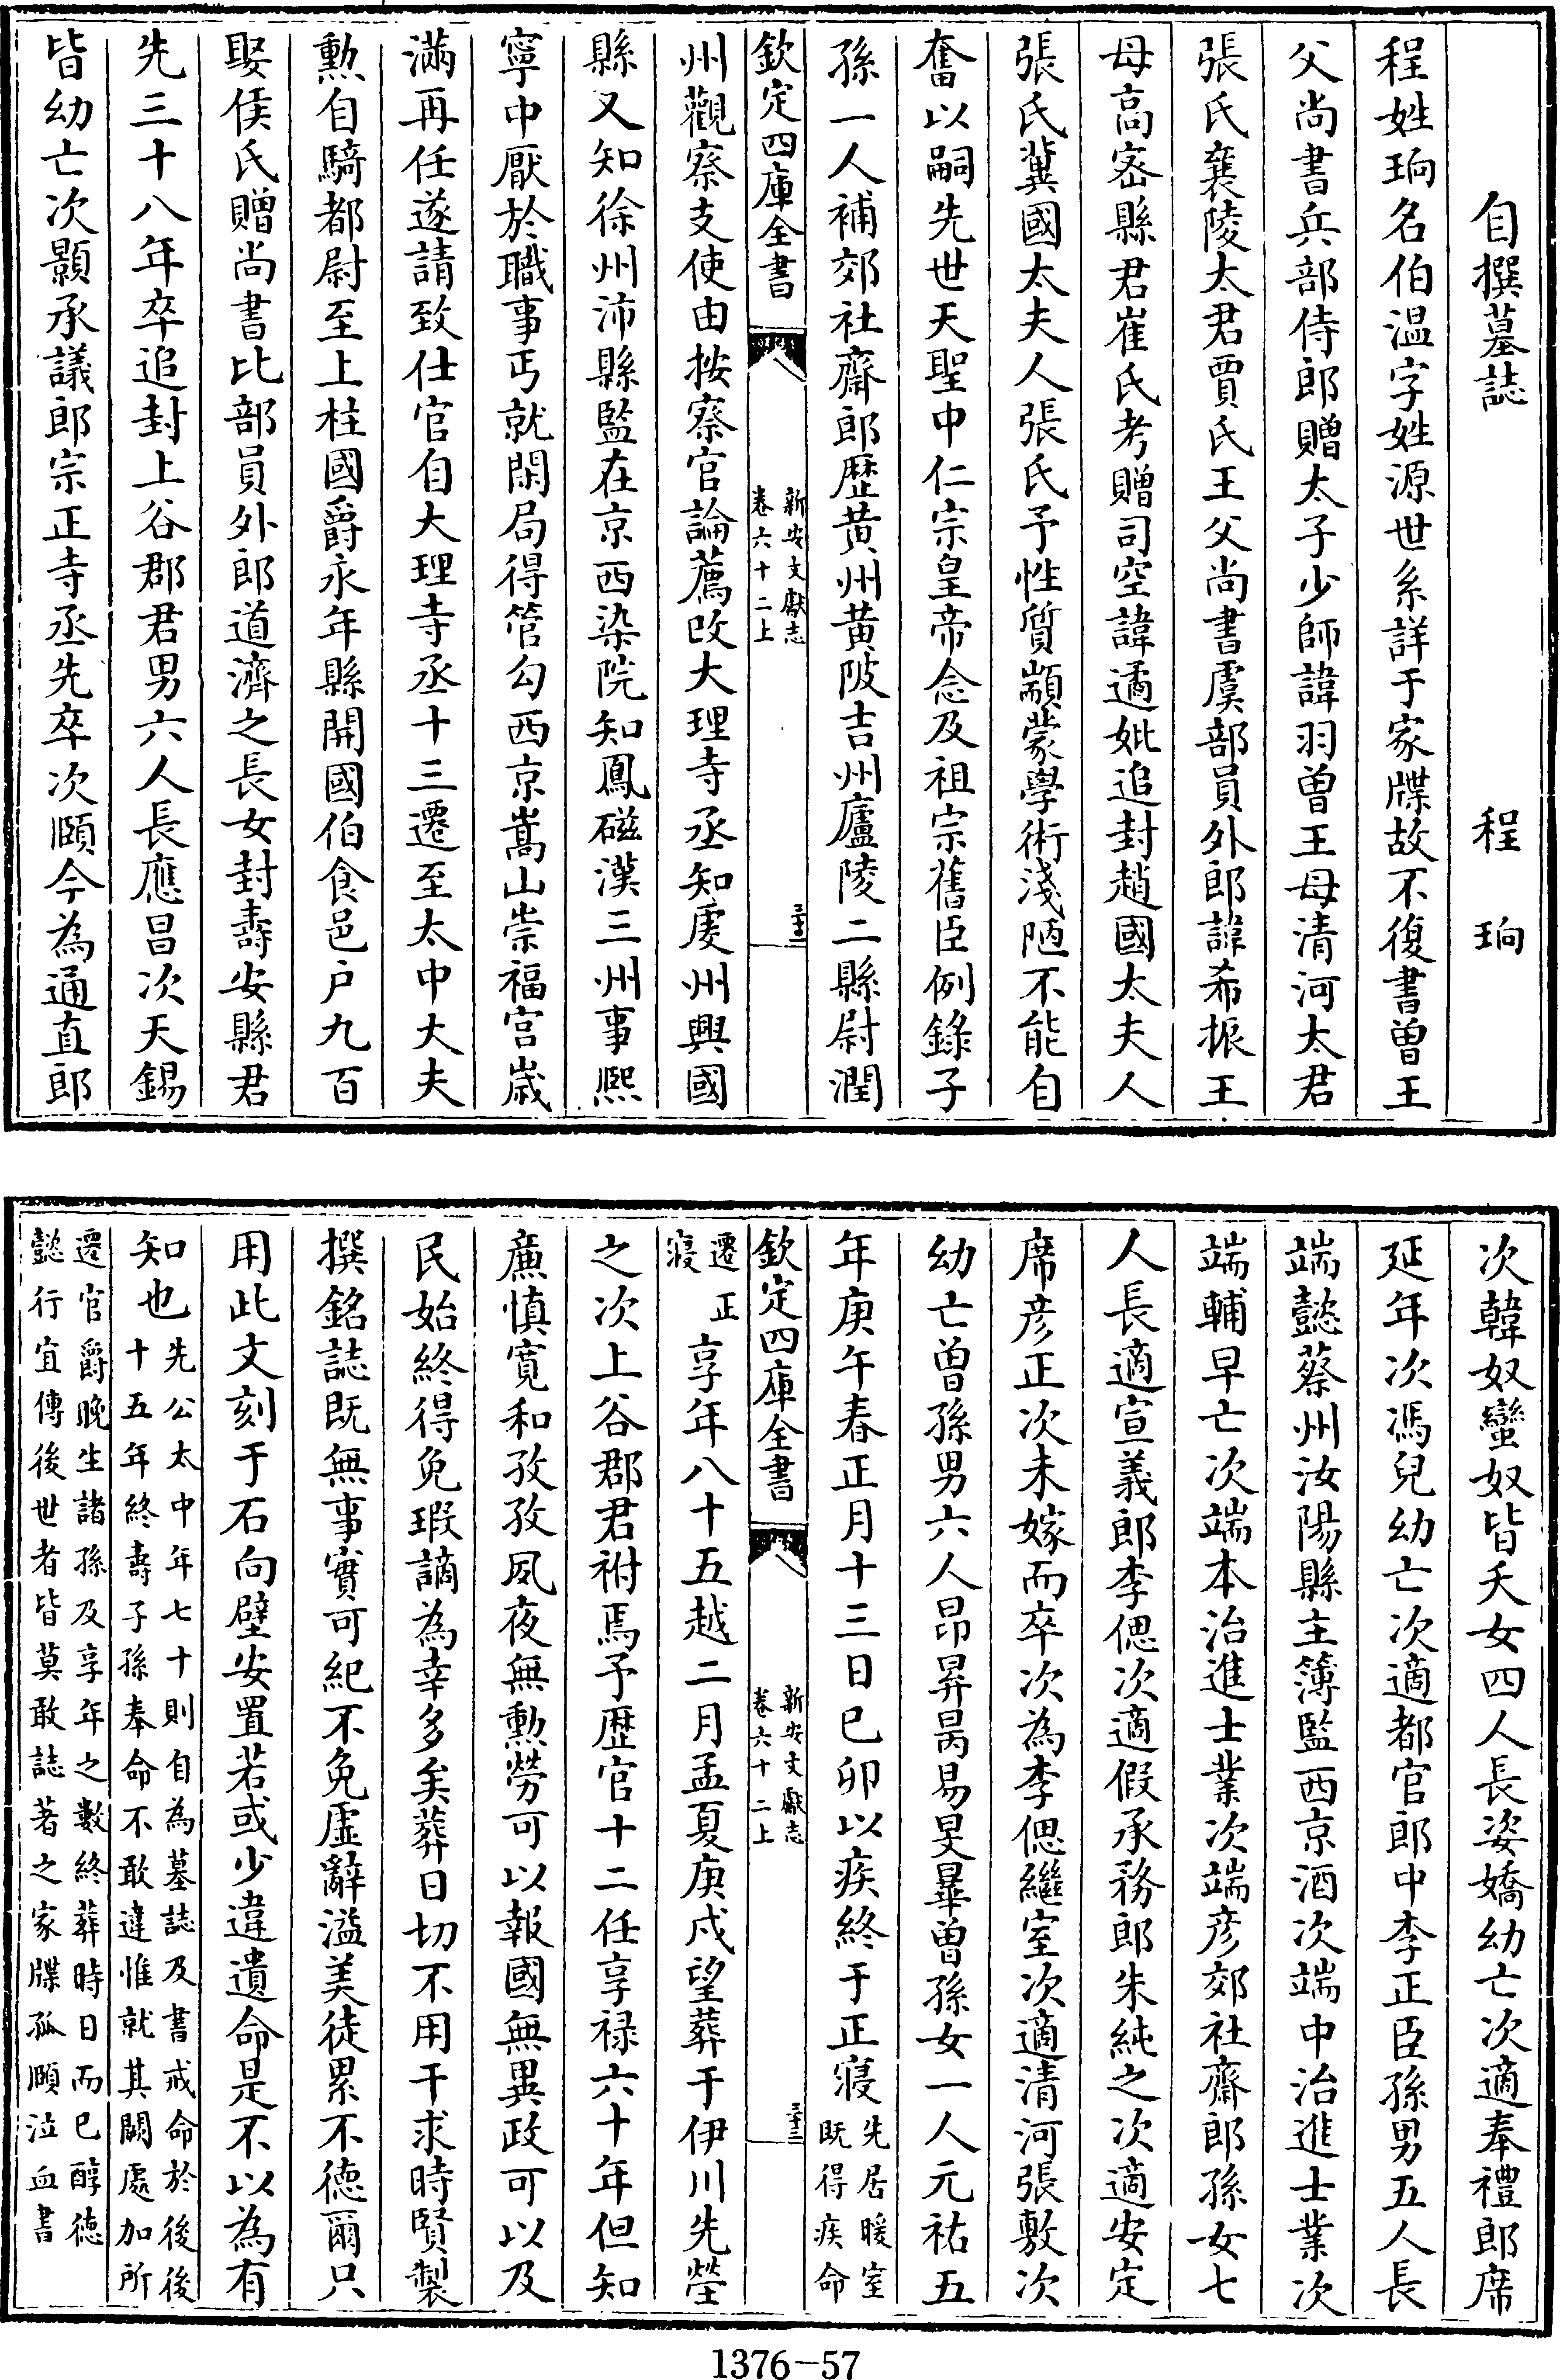 自撰墓誌　程珦
程姓珦名伯温字姓源世系詳于家牒故不復書曽王
父尚書兵部侍郎贈太子少師諱羽曽王母清河太君
張氏襄陵太君賈氏王父尚書虞部員外郎諱希振王
母高宻縣君崔氏考贈司空諱遹妣追封趙國太夫人
張氏兾國太夫人張氏予性質顓蒙學術淺陋不能自
奮以嗣先世天聖中仁宗皇帝念及祖宗舊臣例錄子
孫一人補郊社齋郎歴黄州黄陂吉州廬陵二縣尉潤
欽定四庫全書
新安文獻志
卷六十二上
三十三
州觀察支使由按察官論薦改大理寺丞知䖍州興國
縣又知徐州沛縣監在京西染院知鳳磁漢三州事熈
寧中厭於職事丐就閑局得管勾西京嵩山崇福宫嵗
滿再任遂請致仕官自大理寺丞十三遷至太中大夫
勲自騎都尉至上柱國爵永年縣開國伯食邑户九百
娶侯氏贈尚書比部員外郎道濟之長女封壽安縣君
先三十八年卒追封上谷郡君男六人長應昌次天錫
皆幼亡次顥承議郎宗正寺丞先卒次頤今為通直郎
次韓奴蠻奴皆夭女四人長姿嬌幼亡次適奉禮郎席
延年次馮兒幼亡次適都官郎中李正臣孫男五人長
端懿蔡州汝陽縣主簿監西京酒次端中治進士業次
端輔早亡次端本治進士業次端彦郊社齋郎孫女七
人長適宣義郎李偲次適假承務郎朱純之次適安定
席彦正次未嫁而卒次為李偲繼室次適清河張敷次
幼亡曽孫男六人昂昇昺易旻暈曽孫女一人元祐五
年庚午春正月十三日已卯以疾終于正寢先居暖室
既得疾命
欽定四庫全書
新安文獻志
卷六十二上
三十三
遷正
寢享年八十五越二月孟夏庚戍望葬于伊川先塋
之次上谷郡君祔焉予歴官十二任享禄六十年但知
亷慎寛和孜孜夙夜無勲勞可以報國無異政可以及
民始終得免瑕謫為幸多矣葬日切不用干求時賢製
撰銘誌既無事實可紀不免虚辭溢美徒累不徳爾只
用此文刻于石向壁安置若或少違遺命是不以為有
知也先公太中年七十則自為墓誌及書戒命於後後
十五年終壽子孫奉命不敢違惟就其闕處加所
遷官爵晚生諸孫及享年之數終葬時日而已醇徳
懿行宜傳後世者皆莫敢誌著之家牒孤頤泣血書
1376-57